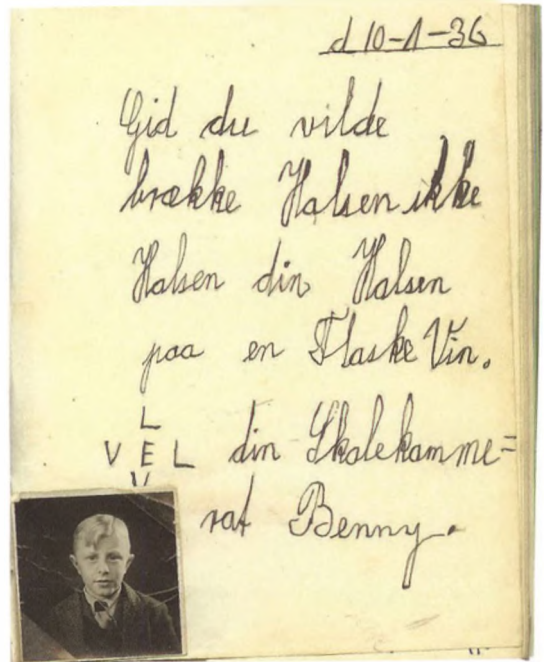 d 10-1-36
Gid du vilde
brække Halsen ikke
Halsen din Halsen
paa en Flaske Vin.
L
VEL din Skolekamme=
V
rat Benny.